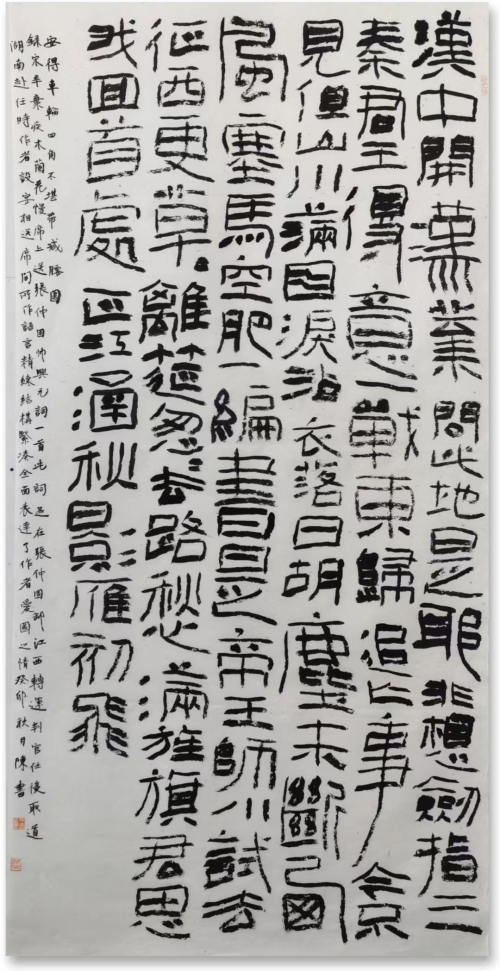 漢中開漢業問此地是耶非想劍指三
秦君王得意一戰東歸追亡事今不
見但山川滿目淚沾衣落日胡塵未斷西
風塞馬空肥一編書是帝王師小試去
征西更草〻離筵怱〻去路愁滿旌旗君思
我回首處正江涵秋影雁初飛
安得車輪四角不堪帶減腰圍
錄宋辛棄疾木蘭花慢席上送張仲固帅興元詞一首此詞是在張仲固卸江西轉運判官任後取道
湖南赴任時作者設宴相送席間所作語言精練結構緊湊全面表達了作者愛國之情癸卯秋月陳書